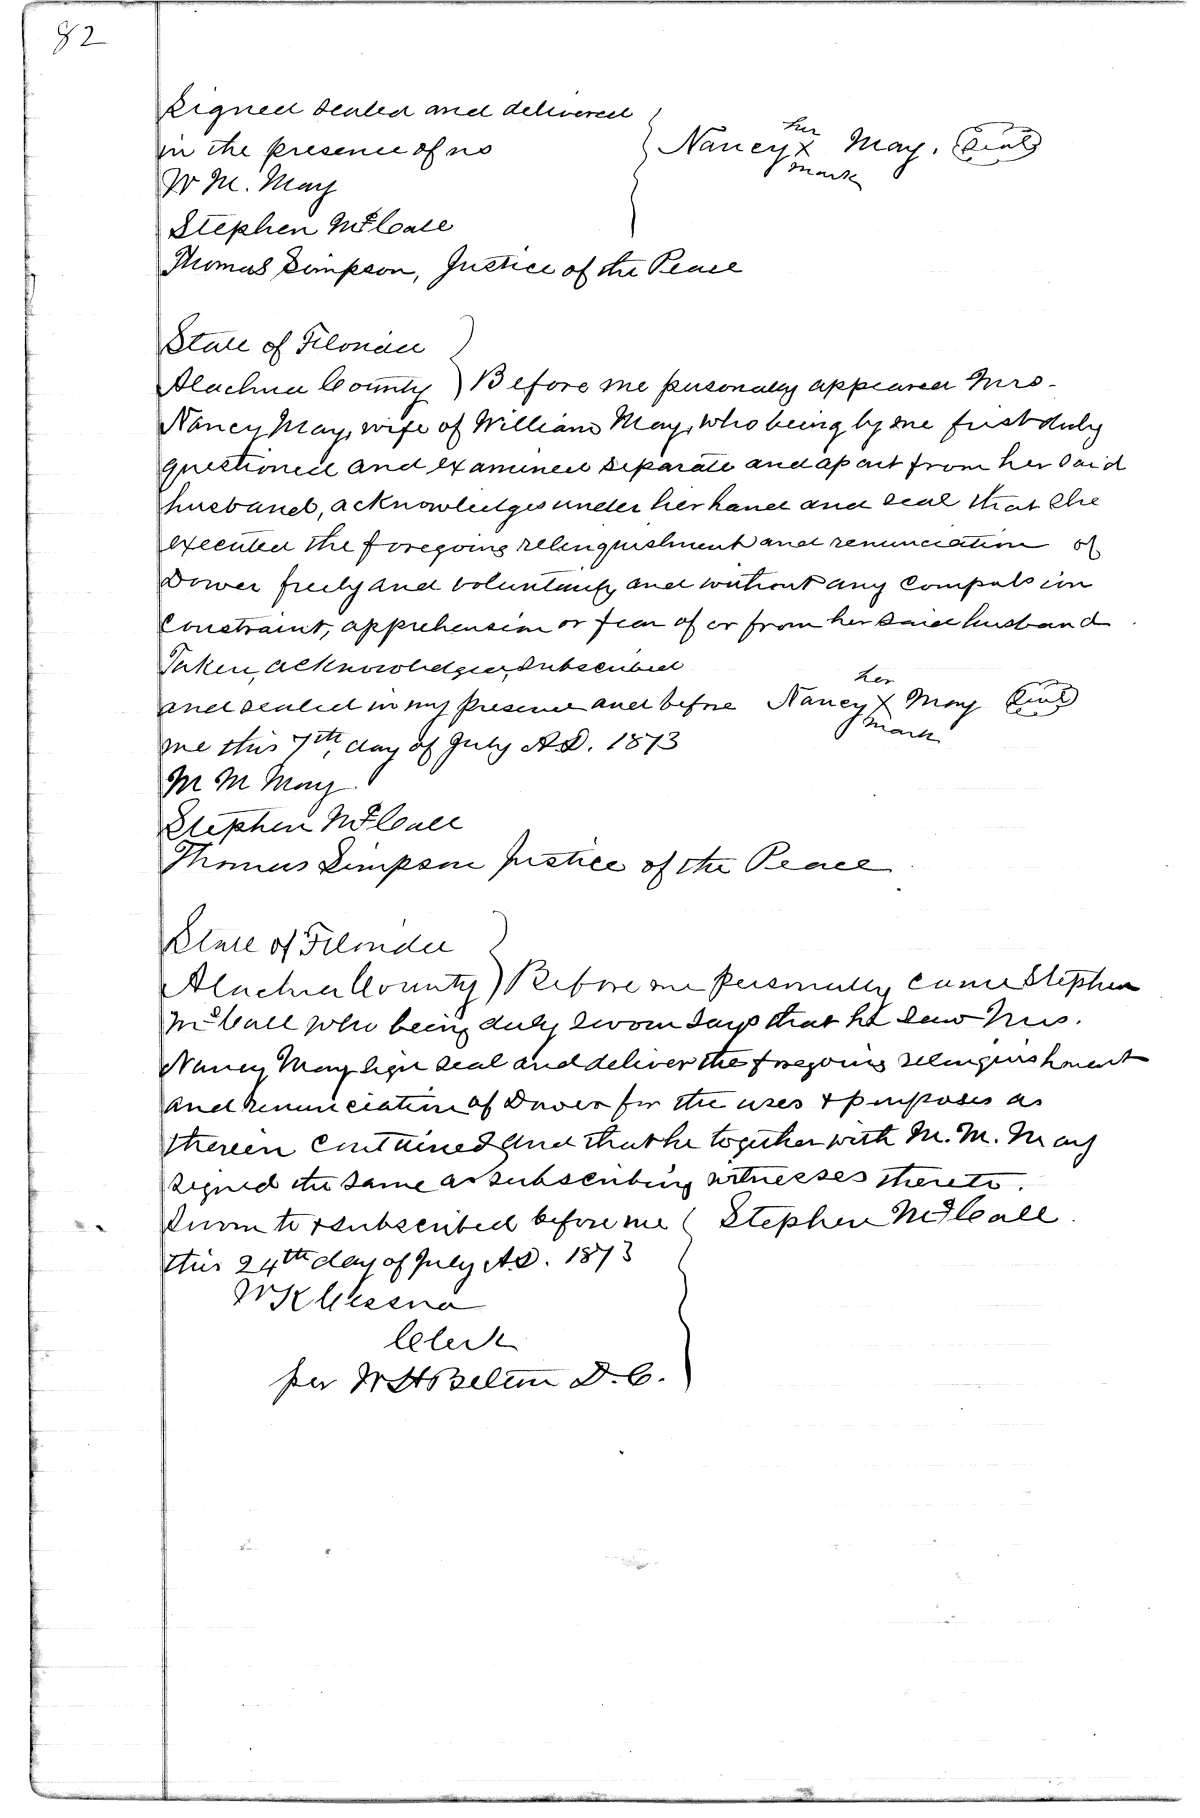 82
Signed sealed and delivered
in the presence of us
W M. May
Stephen McCall
Thomas Simpson, Justice of the Peace
her
Nancy X May. Seal
mark
State of Florida
Alachua County } Before me personally appeared Mrs.
Nancy May, wife of William May, who being by me first duly
questioned and examined separate and apart from her said
husband, acknowledges under her hand and seal that she
executed the foregoing relinquishment and renunciation of
Dower freely and voluntarily and without any Compulsion
Constraint, apprehension or fear of or from her said husband
Taken, acknowledged, subscribed
and sealed in my presence and before
me this 7th day of July A.D. 1873
her
Nancy X May Seal
mark
M M May
Stephen McCall
Thomas Simpson Justice of the Peace
State of Florida
Alachua County } Before me personally came Stephen
McCall who being duly sworn says that he saw Mrs.
Nancy May sign seal and deliver the foregoing relinquishment
and renunciation of Dower for the uses & purposes as
therein contained and that he together with M. M. May
signed the same as subscribing witnesses thereto.
Sworn to & subscribed before me { Stephen McCall.
this 24th day of July A.D. 1873
W K Cessna
Clerk
per W H Belton D.C.